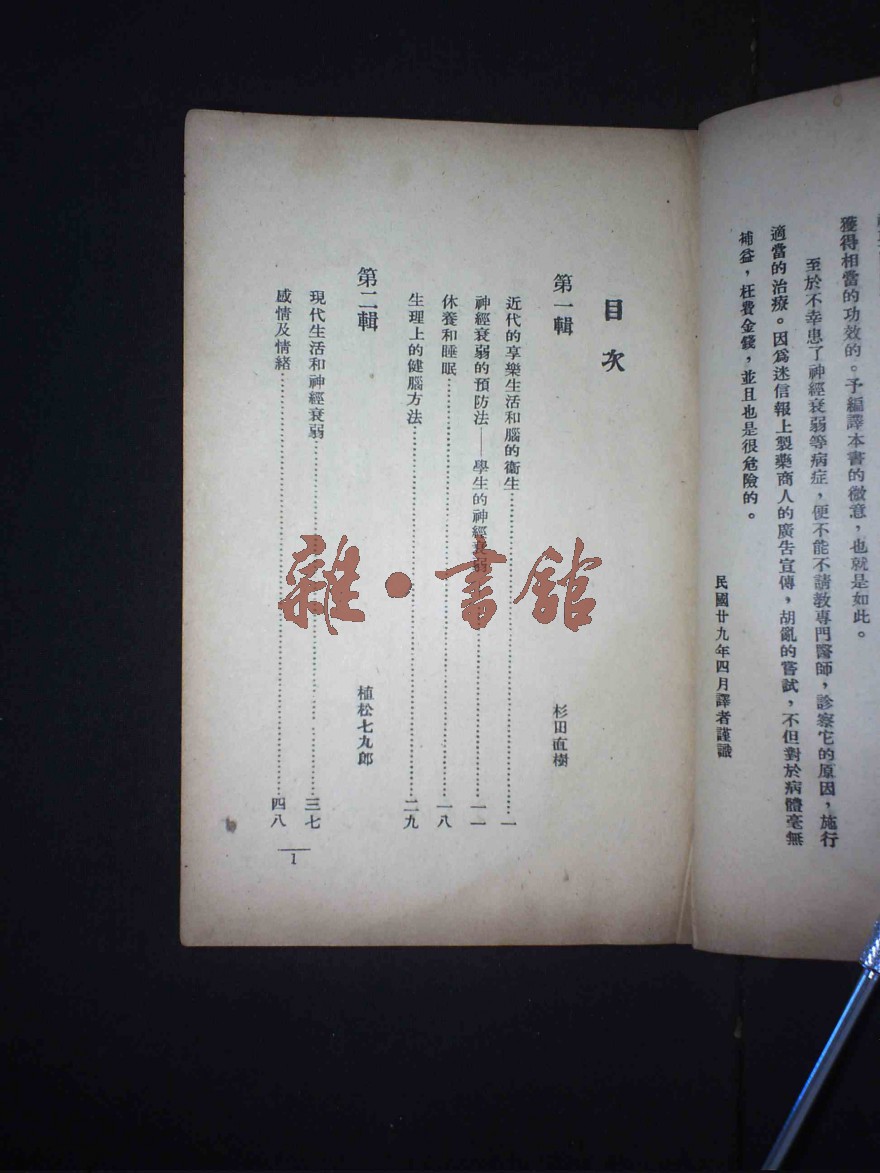 獲得相當的功效的。予編譯本書的微意，也就是如此。
至於不幸患了神經衰弱等病症，便不能不請教專門醫師，診察它的原因，施行
適當的治療。因爲迷信報上製藥商人的廣告宣傳，胡亂的嘗試，不但對於病體毫無
補益，枉費金錢，並且也是很危險的。
民國廿九年四月譯者謹識
目次
第一輯 杉田直樹
近代的享樂生活和腦的衞生 一
神經衰弱的預防法——學生的神經衰弱 一一
休養和睡眠 一八
生理上的健腦方法 二九
第二輯 植松七九郎
現代生活和神經衰弱 三七
感情及情緒 四八
1
雜·書館